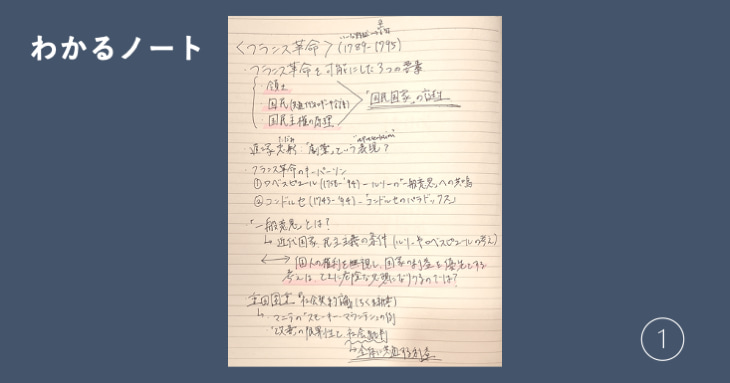 わかるノート
〈フランス革命〉(1789-1795)
・フランス革命を可能にした3つの要素
・領土
・国民
・国民主権の原理
「国民国家」の
という表現?
・フランス革命のキーパーソン
①ロベスピエール(1758-'94)-ルソーの「一般意思」への共鳴
②コンドルセ(1743-'94)-「コンドルセのパラドックス」
・「一般意思」とは?
↳近代国家、民主主義の条件(ルソーやロベスピエールの考え)
←→個人の権利を無視し、国家の利益を優先する
考えは、ときに危険な思想になりうるのでは?
重田園江『社会契約論』(ちくま新書)
↳マニラの"スモーキー・マウンテン"の例
↳全体に共通する利益
1